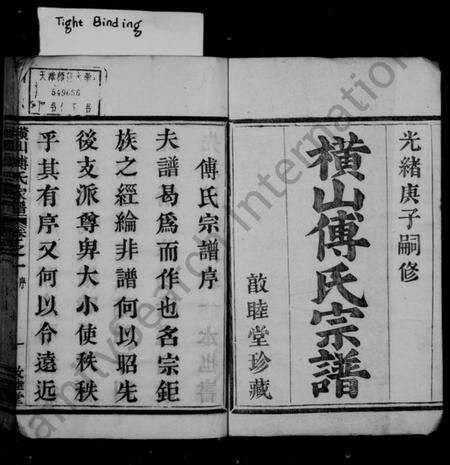 Tight Binding
光緒庚子嗣修
橫山傅氏宗譜
敦睦堂珍藏
傅氏宗譜序
夫譜曷爲而作也名宗鉅
族之經綸非譜何以昭先
後支派尊卑大小使秩秩
乎其有序又何以令遠近
橫山傅氏宗譜 卷之一 序
549656